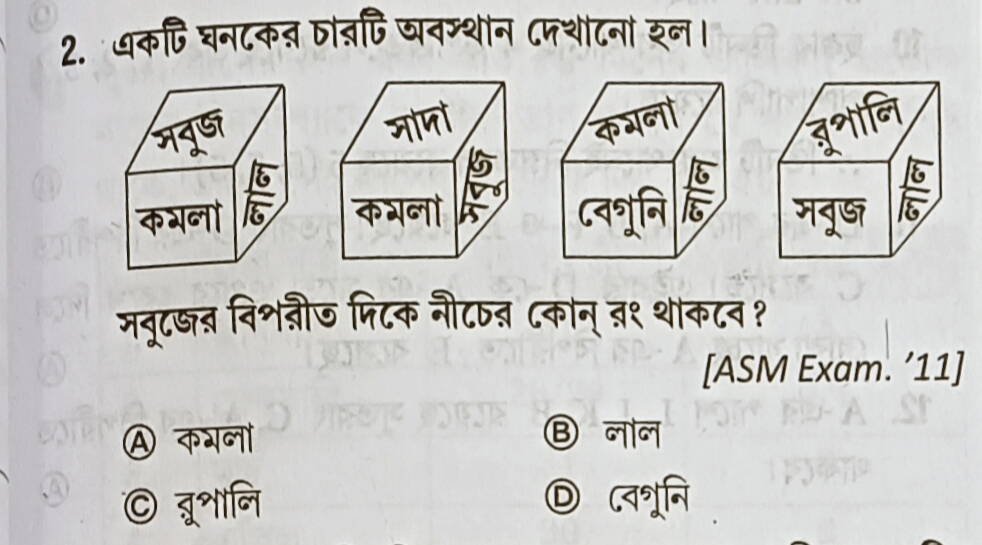 2. একটি ঘনকের চারটি অবস্থান দেখানো হল।
সবুজ সাদা কমলা রুপালি
কমলা লাল কমলা সবুজ বেগুনি লাল সবুজ লাল
সবুজের বিপরীত দিকে নীচের কোন্ রং থাকবে?
[ASM Exam. '11]
Ⓐ কমলা Ⓑ লাল
Ⓒ রুপালি Ⓓ বেগুনি